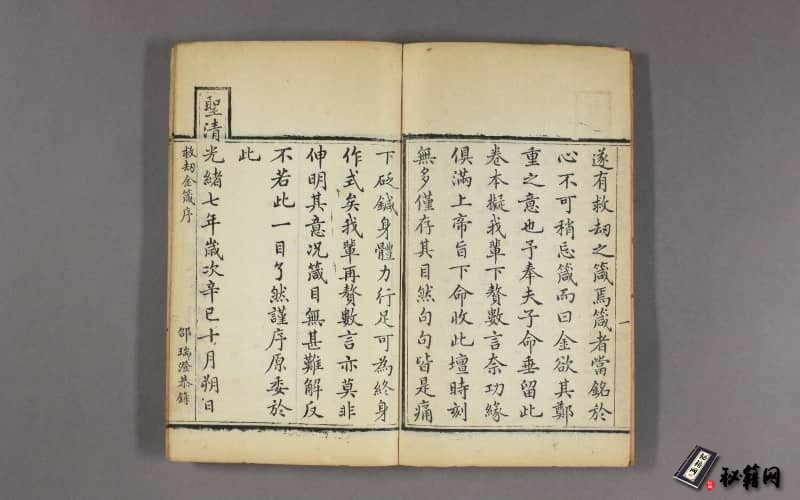 遂有救劫之箴焉箴者當銘於
心不可稍忘箴而曰金欲其鄭
重之意也予奉夫子命垂留此
卷本擬我輩下贅數言奈功緣
俱滿上帝旨下命收此壇時刻
無多僅存其目然句句皆是痛
下砭鍼身體力行足可為終身
作式矣我輩再贅數言亦莫非
伸明其意况箴目無甚難解反
不若此一目了然謹序原委於
此
聖清光緒七年歲次辛巳十月朔日
救劫金箴序
邵瑞澄恭錄
秘籍网